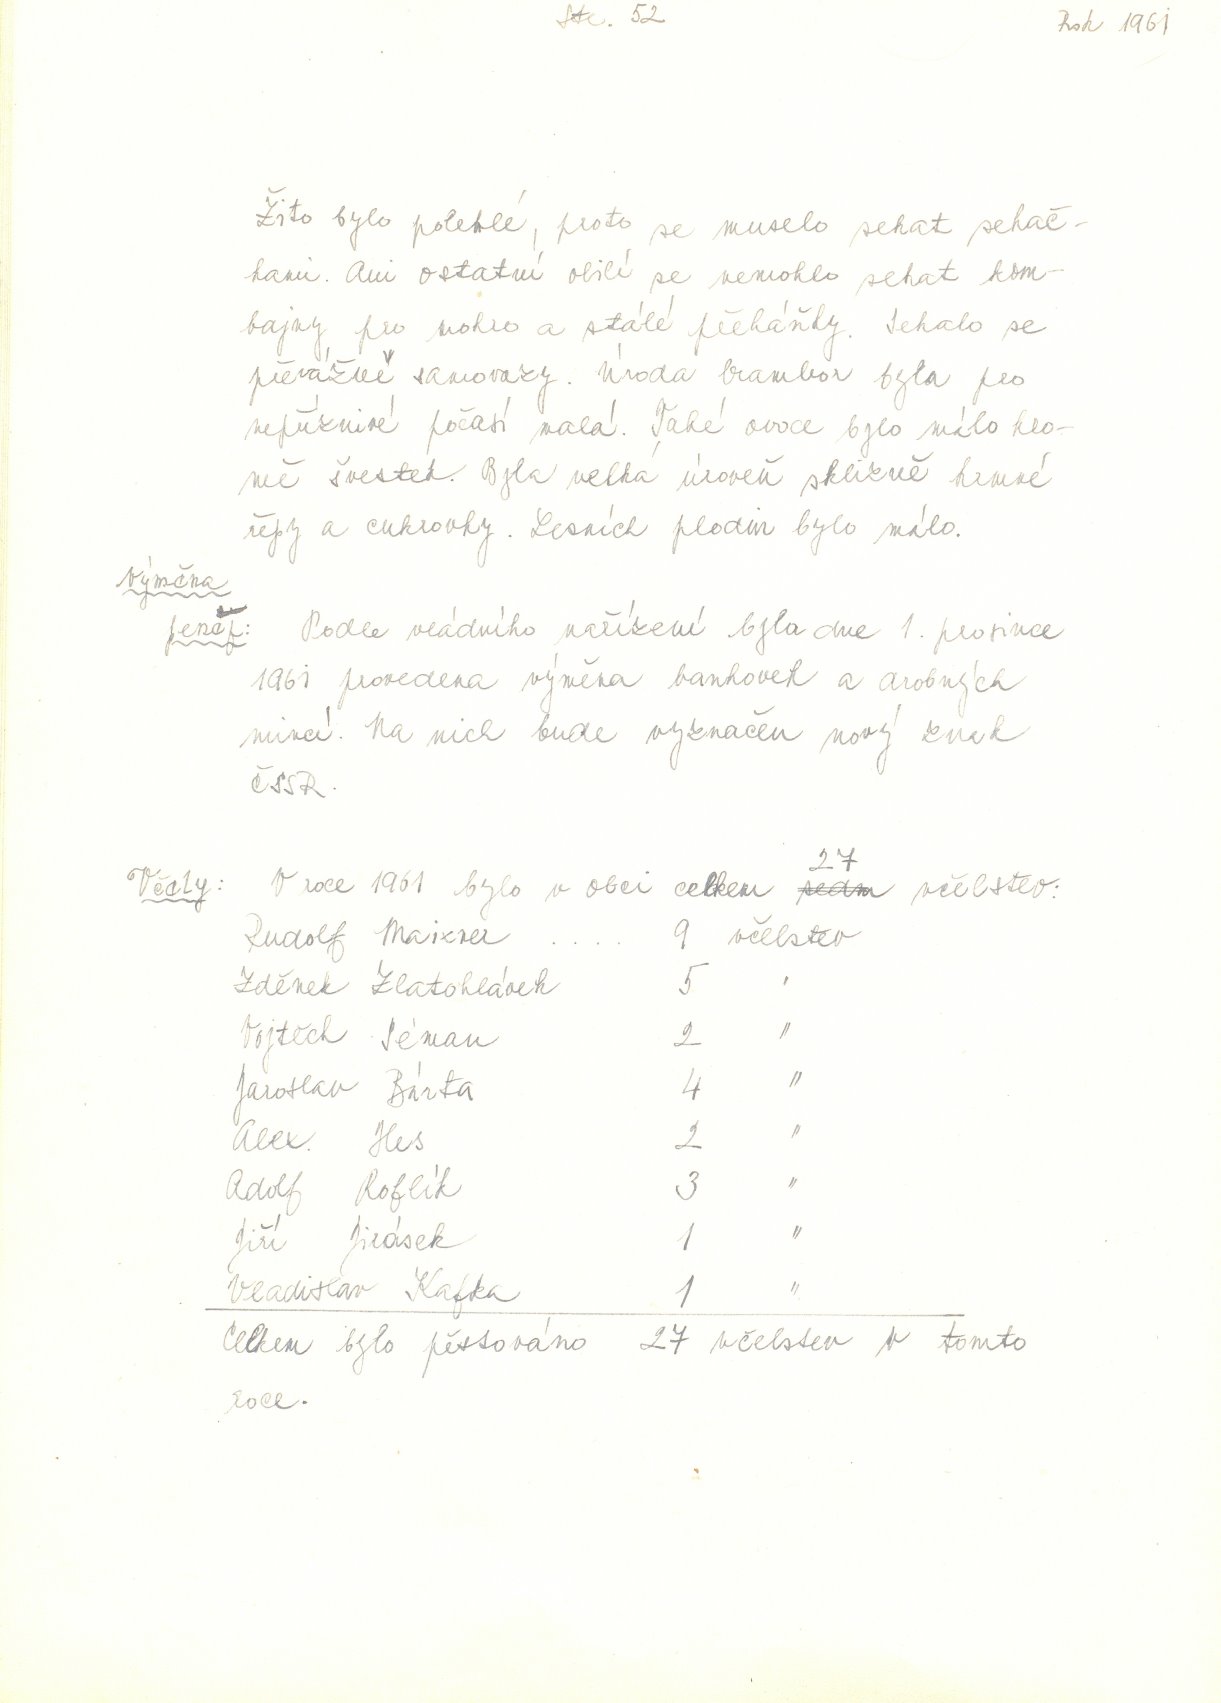 Str. 52
Rok 1961
Žito bylo polehlé, proto se muselo sekat sekač-
kami. Ani ostatní obilí se nemohlo sekat kom-
bajny pro mokro a stálé přeháňky. Sekalo se
převážně samovazy. Úroda brambor byla pro
nepříznivé počasí malá. Také ovoce bylo málo kro-
mě švestek. Byla velká úroveň sklizně krmné
řepy a cukrovky. Lesních plodin bylo málo.
Výměna
peněz: Podle vládního nařízení byla dne 1. prosince
1961 provedena výměna bankovek a drobných
mincí. Na nich bude vyznačen nový znak
ČSSR.
27
Včely: V roce 1961 bylo v obci celkem sedm včelstev:
Rudolf Maixner .... 9 včelstev
Zděnek Zlatohlávek 5 "
Vojtěch Séman 2 "
Jaroslav Bárta 4 "
Alex. Hes 2 "
Adolf Roflík 3 "
Jiří Jirásek 1 "
Vladislav Kafka 1 "
Celkem bylo pěstováno 27 včelstev v tomto
roce.